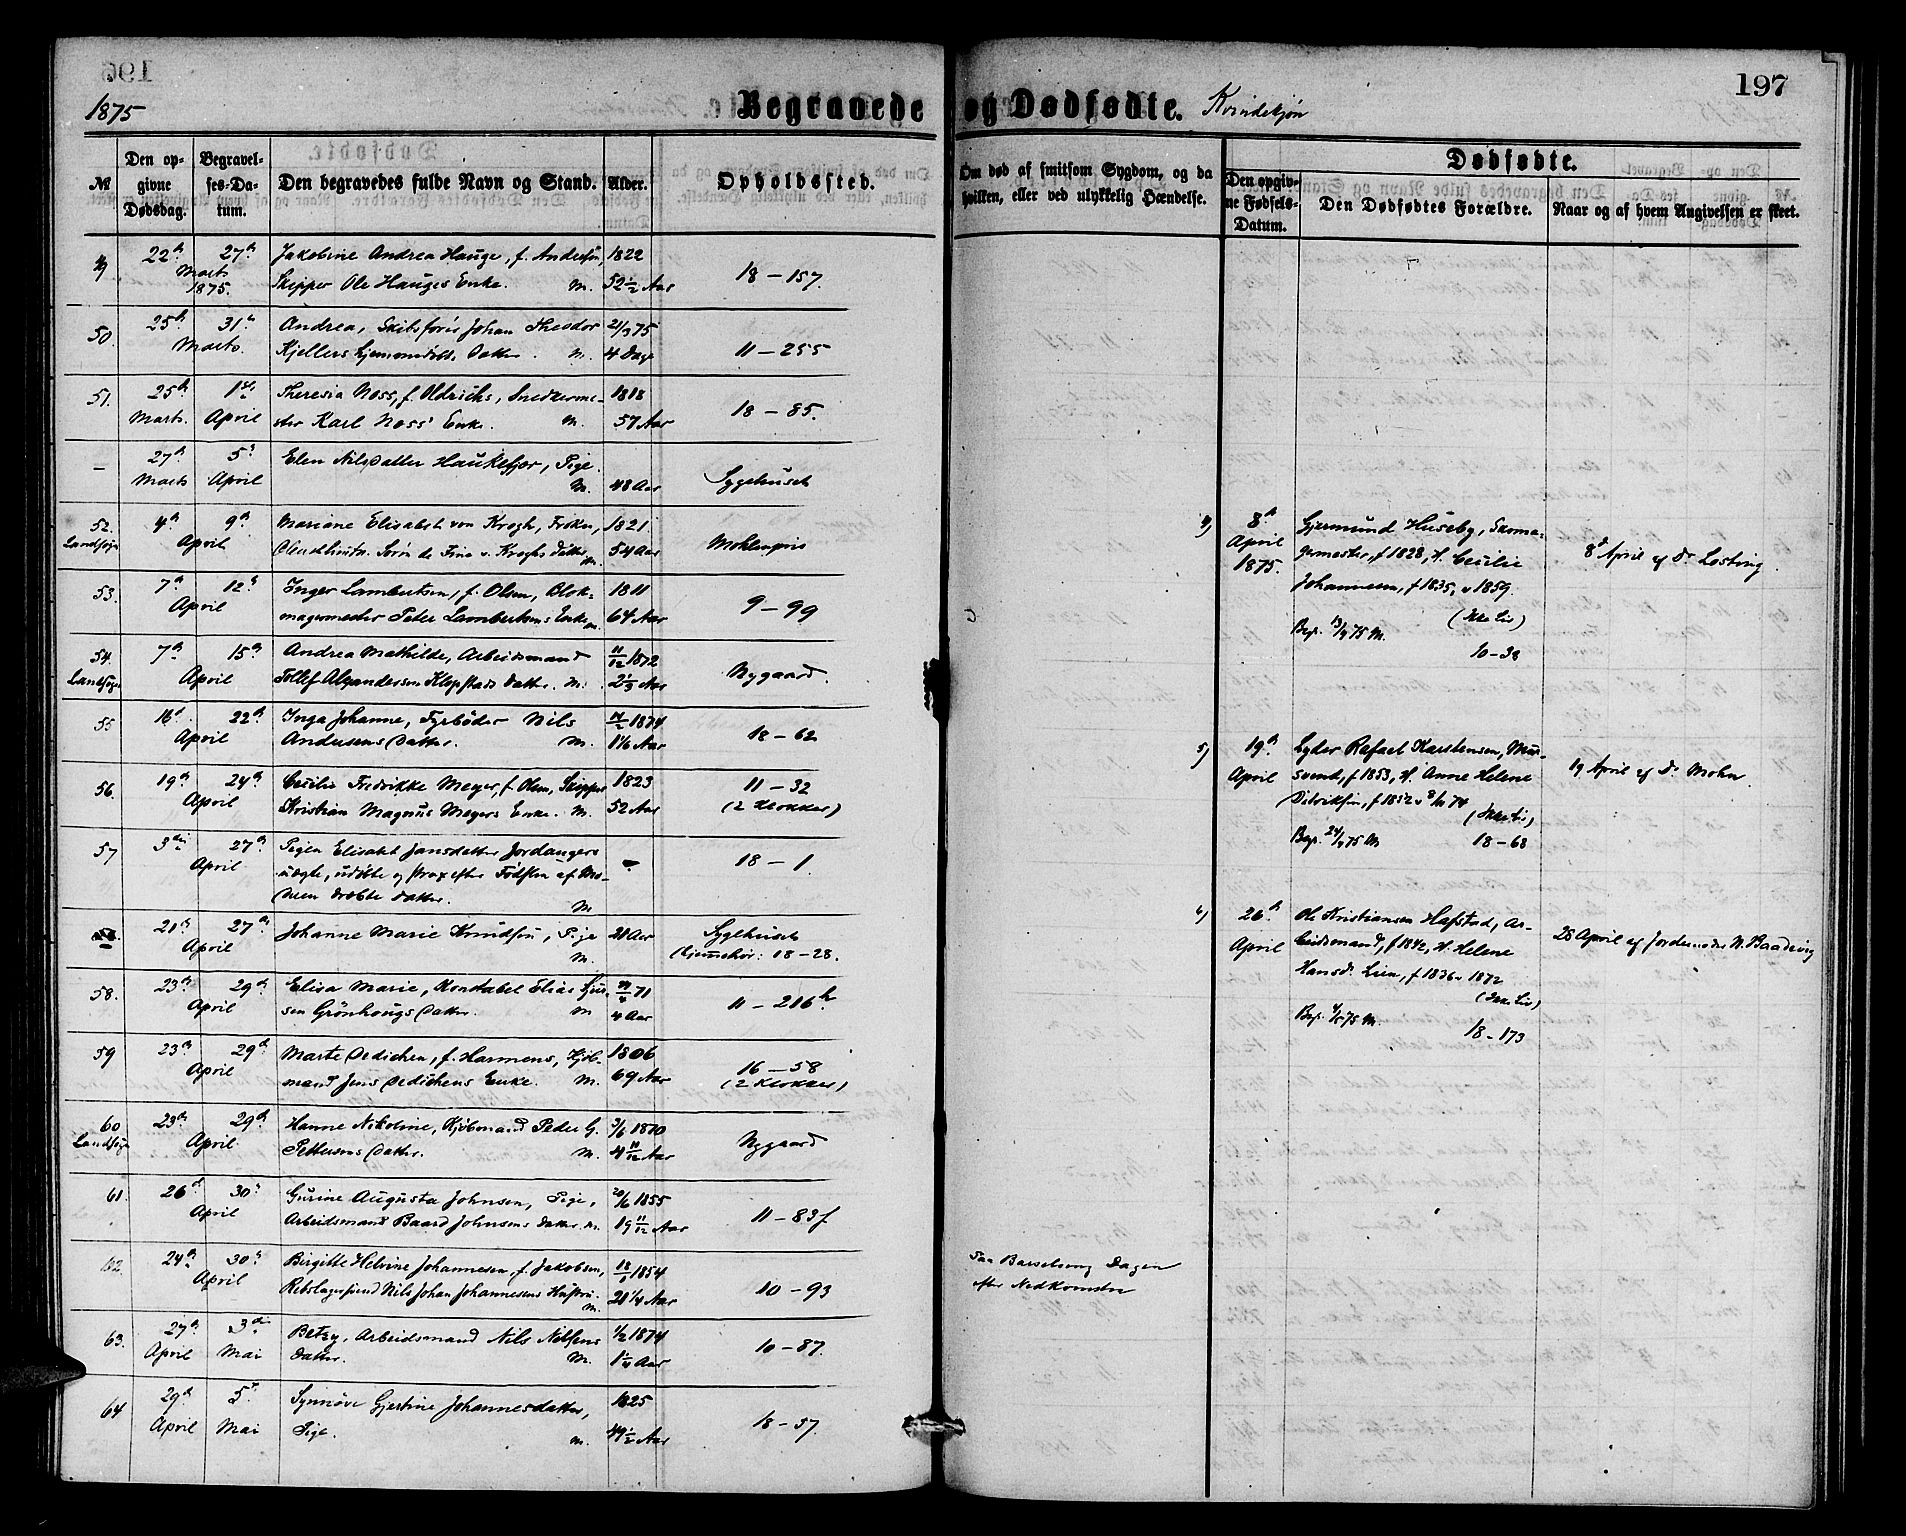 197
1875
Begravede og Dødfødte. Kvindekjøn
№
Den op-
givne
Dødsdag.
Begravel-
ses-Da-
tum.
Den begravedes fulde Navn og Stand.
Alder.
Opholdssted.
Om død af smitsom Sygdom, og da
hvilken, eller ved ulykkelig Hændelse.
Dødfødte.
Den opgiv-
ne Fødsels-
Datum.
Den Dødfødtes Forældre.
Naar og af hvem Angivelsen er skeet.
49 22d 27d Jakobine Andrea Hauge, f. Andersen, 1822
Marts 1875. Skipper Ole Hauges Enke. M. 52 1/2 Aar 18 – 157.
50. 25d 31d Andrea, Skibsfører Johan Theodor 21/3 75
Marts. Kjellers hjemmedøbt. Datter. M. 4 Dage 11 – 255
51. 25d 1ste Theresia Noss, f. Oldrichs, Snedkerme- 1818
Marts. April ster Karl Noss' Enke. M. 57 Aar 18 – 85.
– 27d 5d Elen Nilsdatter Haukefjær, Pige.
Marts April M. 48 Aar Sygehuset
52. 4d 9d Mariane Elisabet von Krogh, Frøken, 1821
Landsogn April Søren de Fine v. Kroghs Datter M. 54 Aar Møhlenpris
53. 7d 12d Inger Lambertsen, f. Olsen, Blok- 1811
April magermester Peder Lambertsens Enke M. 64 Aar 9 – 99
54. 7d 15d Andrea Mathilde, Arbeidsmand 11/12 1872
Landsogn April Tollef Alexandersen Klopstads Datter. M. 2 1/3 Aar Nygaard.
55 16d 22d Inga Johanne, Fyrbøder Nils 1874
April Andersens Datter. M. 1 1/6 Aar 18 – 62
56. 19d 24d Cecilie Fredrikke Meyer, f. Olsen, Skipper 1823 11 – 32
April Kristian Magnus Meyers Enke. M. 52 Aar (2 Klokker)
57 3die 27d Pigen Elisabet Jansdatter Jordangers
April uægte, udøbte og strax efter Fødslen af Mo- – 18 – 1.
deren dræbte Datter. M
21d 27d Johanne Marie Knudsen, Pige 21 Aar Sygehuset
April M. (hjemmehør: 18 – 28.
58. 23d 29d Elisa Marie, Konstabel Elias
April Grønhougs Datter. M 4 Aar 11 – 216h
59 23d 29d Marte Dedichen, f. Harmens, Kjøb- 1806 16 – 58
April mand Jens Dedichens Enke. M. 69 Aar (2 Klokker)
60 23d 29d Hanne Nikoline, Kjøbmand Peder G. 3/6 1870
Landsogn April Pettersens Datter. M. 4 11/12 Aar Nygaard
61. 26d 30d Gurine Augusta Johnsen, Pige, 20/6 1855
April Arbeidsmand Baard Johnsens Datter. M. 19 11/12 Aar 11 – 83f
62. 24d 30d Birgitte Helvine Johannesen, f. Jakobsen, 1854
April Rebslagersvend Nils Johan Johannesens Hustru. M. 21 1/4 Aar 10 – 93
Paa Barselseng Dagen
efter Nedkomsten
63. 27d 3die Betzy, Arbeidsmand Nils Nilsens 1/2 1874
April Mai Datter. M. 1 1/4 Aar 10 – 87.
64 29d 5te Synnøve Gjertine Johannesdatter, 1825
April Mai Pige. M. 49 1/2 Aar 18 – 57.
4) 8d April 1875. Gjermund Huseby, Skoma-
germester, f 1828, H. Cecilie
Johannesen, f 1835, v 1859.
(Ikke Liv)
Begr. 13/4 75 M.
10–38
8d April af Dr Losting.
5) 19d April Lyder Rafael Karstensen, Mur-
svend, f 1853, H. Anne Helene
Didriksen, f 1852 v 8/11 74
(Ikke Liv)
Begr. 24/4 75 M
18–68
19 April af Dr Mohn
6) 26d April Ole Kristiansen Hafstad, Ar-
beidsmand, f 1842, H. Helene
Hansd. Lien, f 1836 v 1872
(Ikke Liv)
Begr. 4/5 75 M.
18–173
28 April af Jordemoder N. Baadsvig